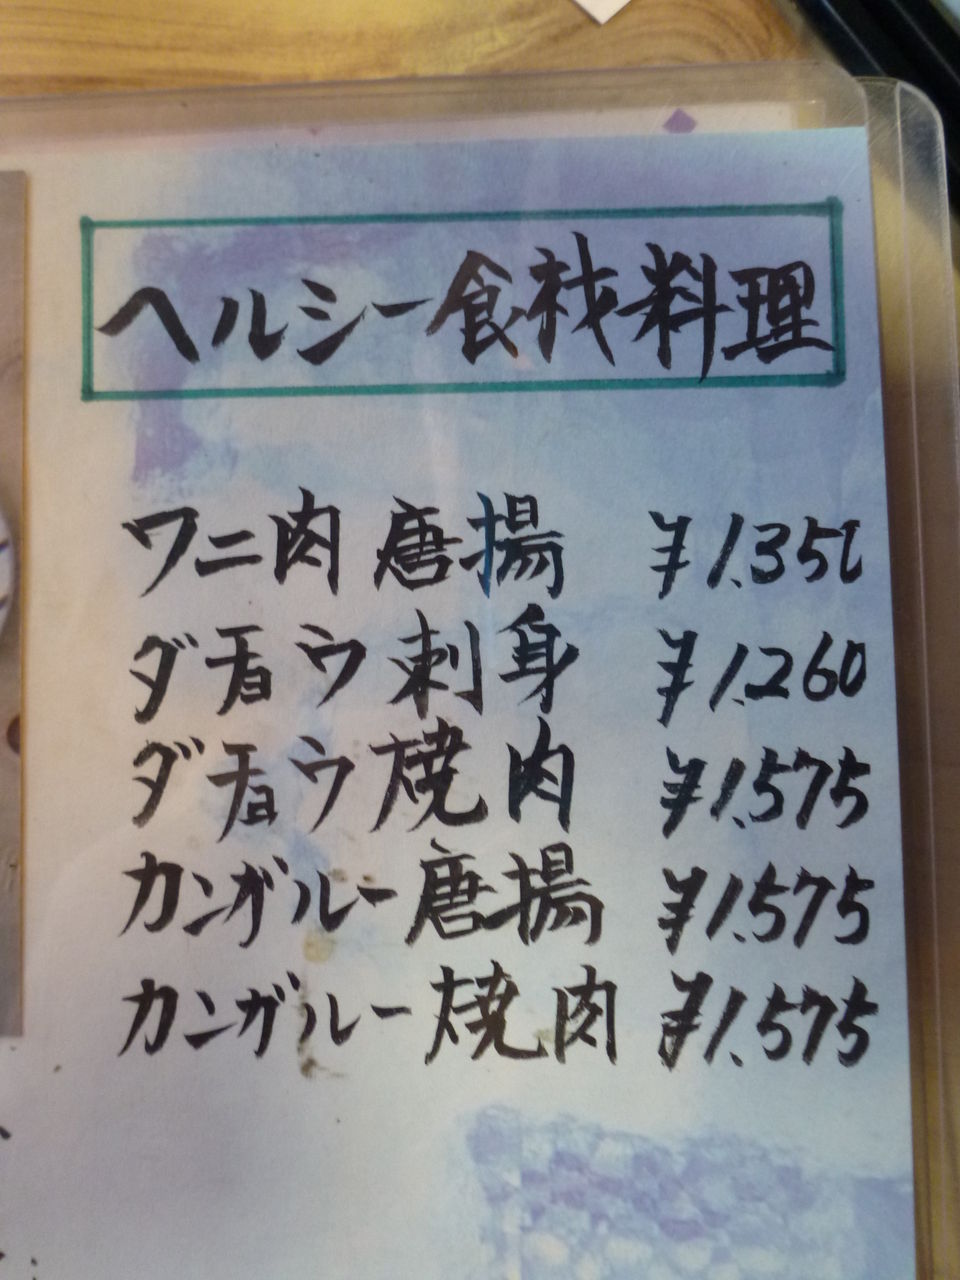 ヘルシー食材料理
ワニ肉唐揚 ¥1.350
ダチョウ刺身 ¥1.260
ダチョウ焼肉 ¥1.575
カンガルー唐揚 ¥1.575
カンガルー焼肉 ¥1.575